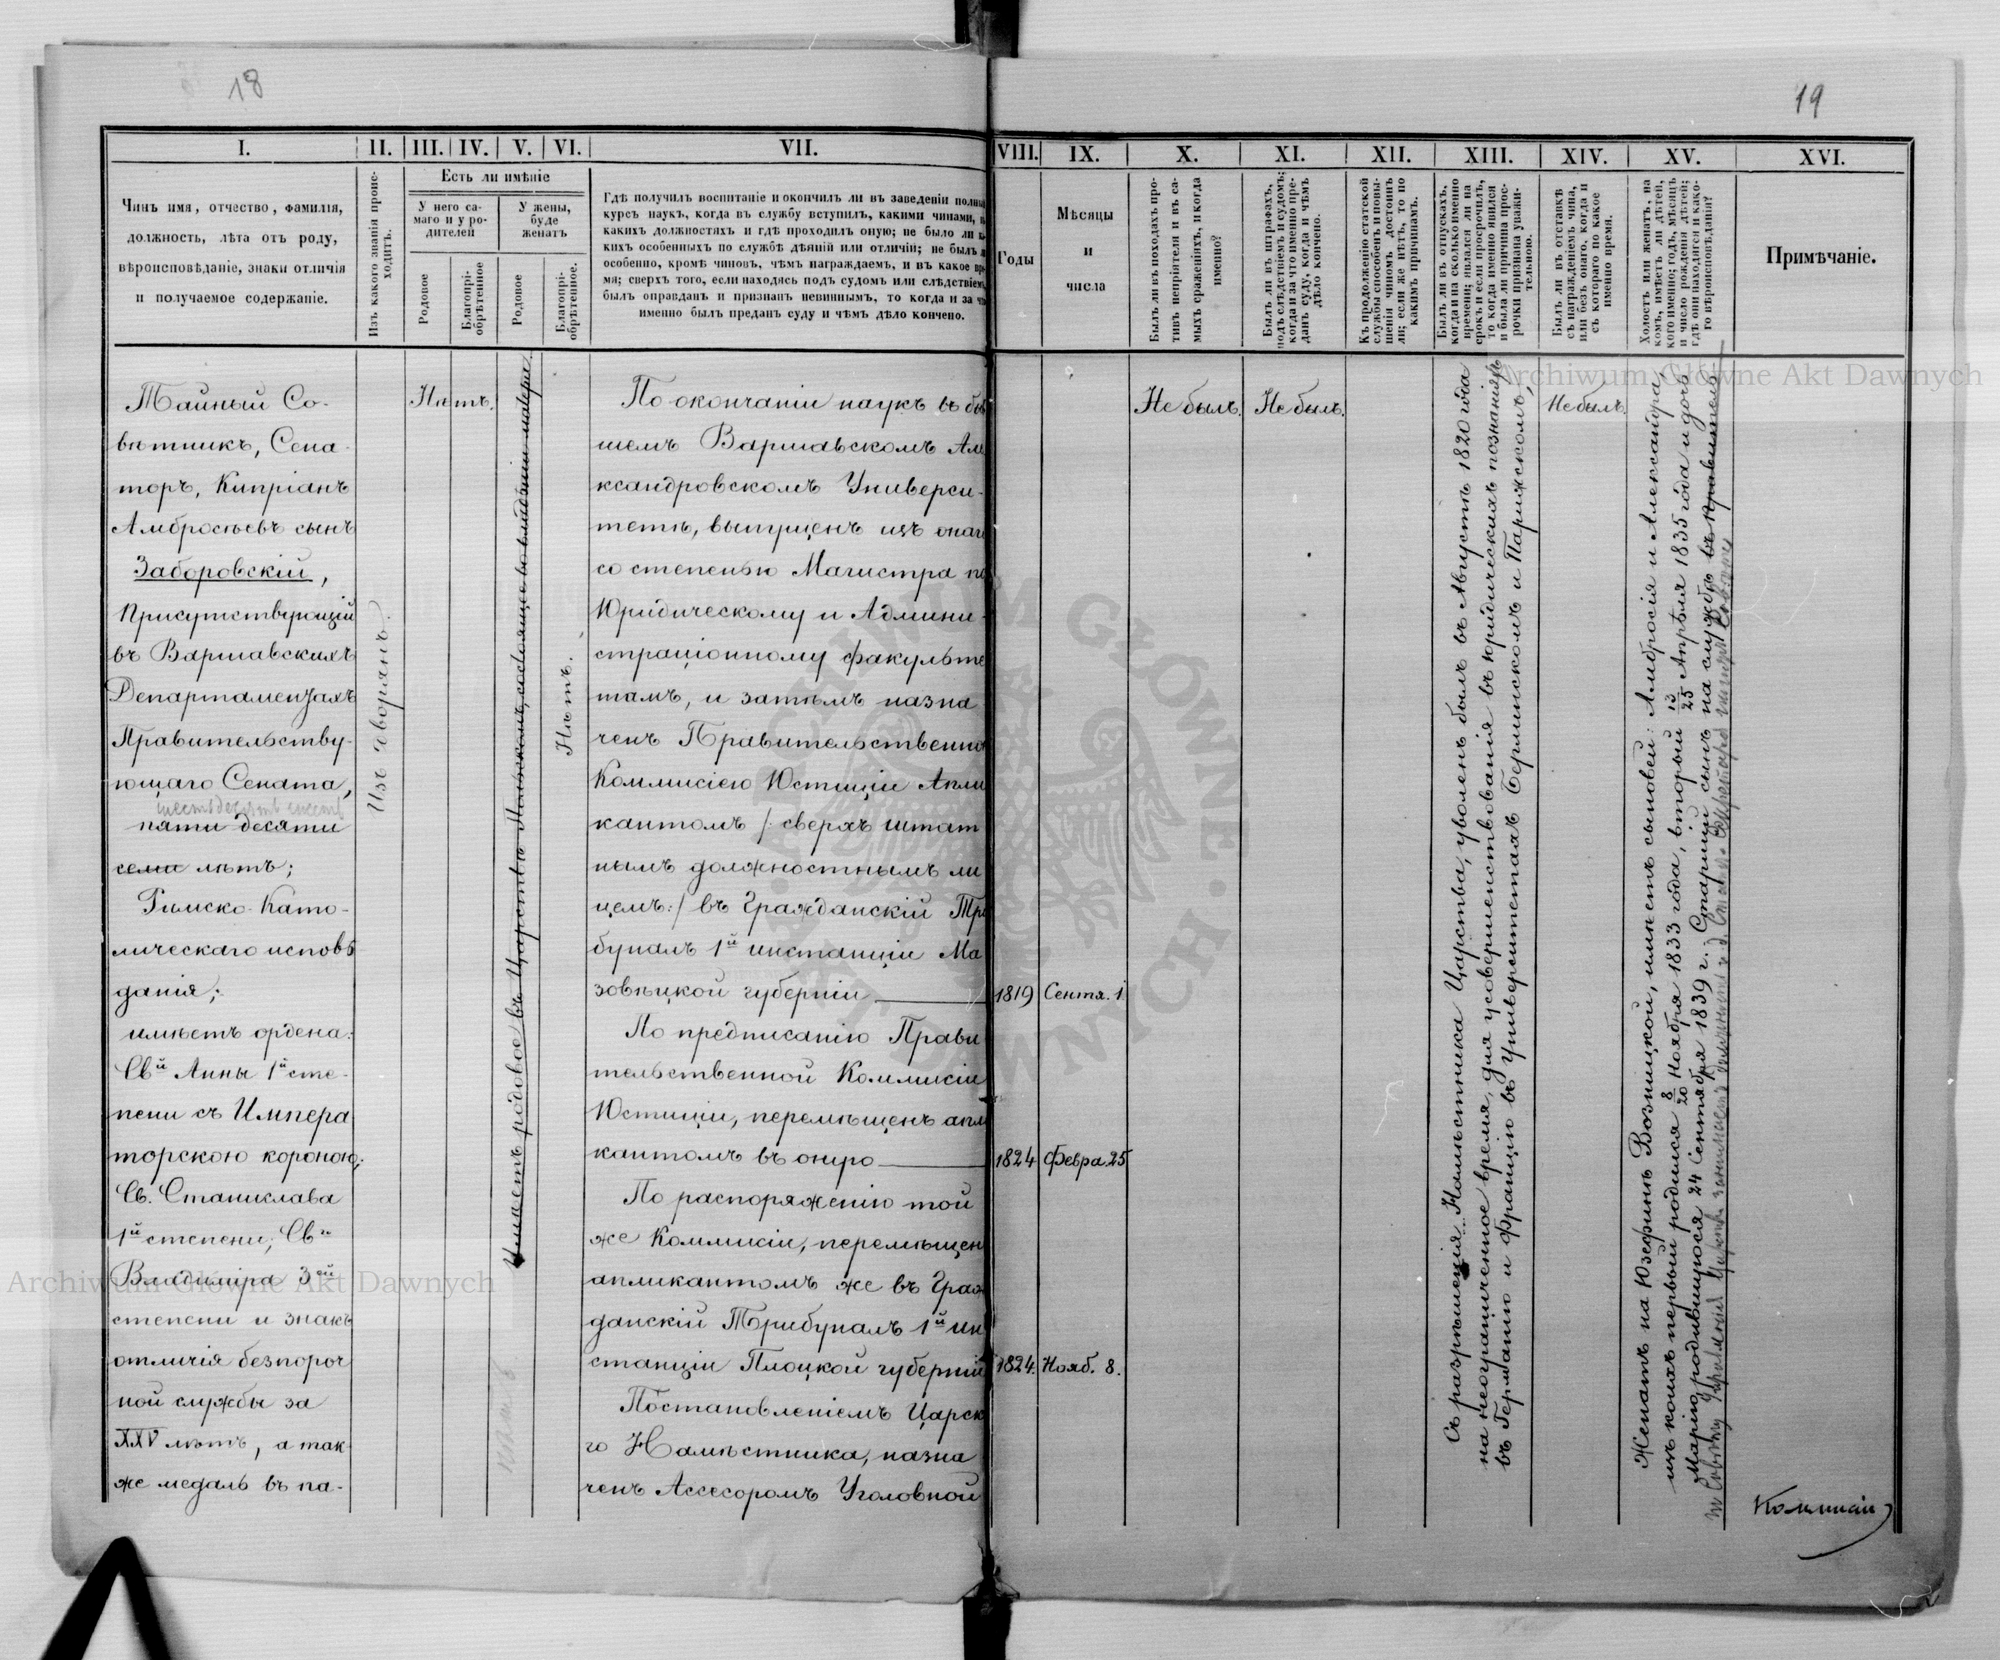 18
19
I.
II.
III.
IV.
V.
VI.
VII.
VIII.
IX.
X.
XI.
XII.
XIII.
XIV.
XV.
XVI.
Чинъ имя, отчество, фамилія,
должность, лѣта отъ роду,
вѣроисповѣданіе, знаки отличія
и получаемое содержаніе.
Изъ какого званія проис-
ходитъ.
Есть ли имѣніе
У него са-
маго и у ро-
дителей
У жены,
буде
женатъ
Родовое
Благопрі-
обрѣтенное
Родовое
Благопрі-
обрѣтенное.
Гдѣ получилъ воспитаніе и окончилъ ли въ заведеніи полный
курсъ наукъ, когда въ службу вступилъ, какими чинами, въ
какихъ должностяхъ и гдѣ проходилъ оную; не было ли ка-
кихъ особенныхъ по службѣ дѣяній или отличій; не былъ ли
особенно, кромѣ чиновъ, чѣмъ награждаемъ, и въ какое вре-
мя; сверхъ того, если находясь подъ судомъ или слѣдствіемъ
былъ оправданъ и признанъ невиннымъ, то когда и за что
именно былъ преданъ суду и чѣмъ дѣло кончено.
Годы
Мѣсяцы
и
числа
Былъ ли въ походахъ про-
тивъ непріятели и въ са-
мыхъ сраженіяхъ, и когда
именно?
Былъ ли въ штрафахъ,
подъ слѣдствіемъ и судомъ;
когда и за что именно пре-
данъ суду, когда и чѣмъ
дѣло кончено.
Къ продолженію статской
службы способенъ и повы-
шенія чиномъ достоинъ
ли; если же нѣтъ, то по
какимъ причинамъ.
Былъ ли въ отпускахъ,
когда и на сколько именно
времени; явился ли на
срокъ и если просрочилъ,
то когда именно явился
и была ли причина прос-
рочки признана уважи-
тельною.
Былъ ли въ отставкѣ
съ награжденіемъ чина,
или безъ онаго, когда и
съ котораго по какое
именно время.
Холостъ или женатъ, на
комъ, имѣетъ ли дѣтей,
кого именно; годъ, мѣсяцъ
и число рожденія дѣтей;
гдѣ они находятся и како-
го вѣроисповѣданія?
Примѣчаніе.
Тайный Со-
вѣтникъ, Сена-
торъ, Кипріанъ
Амбросьевъ сынъ
Заборовскій,
Присутствующій
въ Варшавскихъ
Департаментахъ
Правительству-
ющаго Сената,
шестьдесятъ шесть
пяти десяти
семи лѣтъ;
Римско-Като-
лическаго исповѣ
данія;
имѣетъ ордена:
Свй Анны 1й сте-
пени съ Импера
торскою короною;
Св. Станислава
1й степени; Свг
Владиміра 3ей
степени и знакъ
отличія безпороч
ной службы за
XXV лѣтъ, а так
же медаль въ па-
Изъ дворянъ.
Нѣтъ.
Имѣетъ родовое въ Царствѣ Польскомъ, состоящее во владѣніи матери
Нѣтъ.
По окончаніи наукъ въ быв
шемъ Варшавскомъ Але
ксандровскомъ Универси-
тетѣ, выпущенъ изъ онаго
со степенью Магистра по
Юридическому и Админи-
страціонному факульте
тамъ, и затѣмъ назна
ченъ Правительственною
Коммисіею Юстиціи Апли
кантомъ /: сверхъ штат
нымъ должностнымъ ли
цемъ:/ въ Гражданскій Три
буналъ 1й инстанціи Ма
зовѣцкой губерніи
1819 Сентя. 1.
По предписанію Прави
тельственной Коммисіи
Юстиціи, перемѣщенъ апли
кантомъ въ оную
1824 Февра. 25
По распоряженію той
же Коммисіи, перемѣщен
апликантомъ же въ Граж
данскій Трибуналъ 1й ин
станціи Плоцкой губерніи
1824. Нояб. 8.
Постановленіемъ Царск
го Намѣстника, назна
ченъ Ассесоромъ Уголовной
Не былъ.
Не былъ.
Съ разрѣшенія Намѣстника Царства, уволенъ былъ въ Августѣ 1820 года
на неограниченное время, для усовершенствованія въ юридическихъ познаніяхъ
въ Германію и Францію въ Университетахъ Берлинскомъ и Парижскомъ,
Не былъ.
Женатъ на Юзефинѣ Возницкой, имѣетъ сыновей: Амбросія и Александра,
изъ коихъ первый родился 8/20 Ноября 1833 года, вторый 13/25 Апрѣля 1835 года и дочь
Марію, родившуюся 24 Сентября 1839 г.; Старшій сынъ на службѣ въ Правительс
Коммисіи
Archiwum Główne Akt Dawnych
Archiwum Główne Akt Dawnych
ARCHIWUM GŁÓWNE AKT DAWNYCH